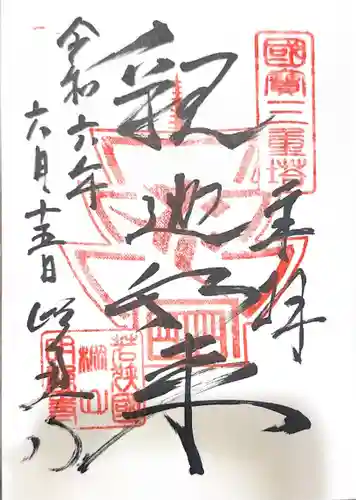 國寶三重塔
奉拝
釈迦如来
令和六年
六月十五日
若狭國
棡山
明通寺